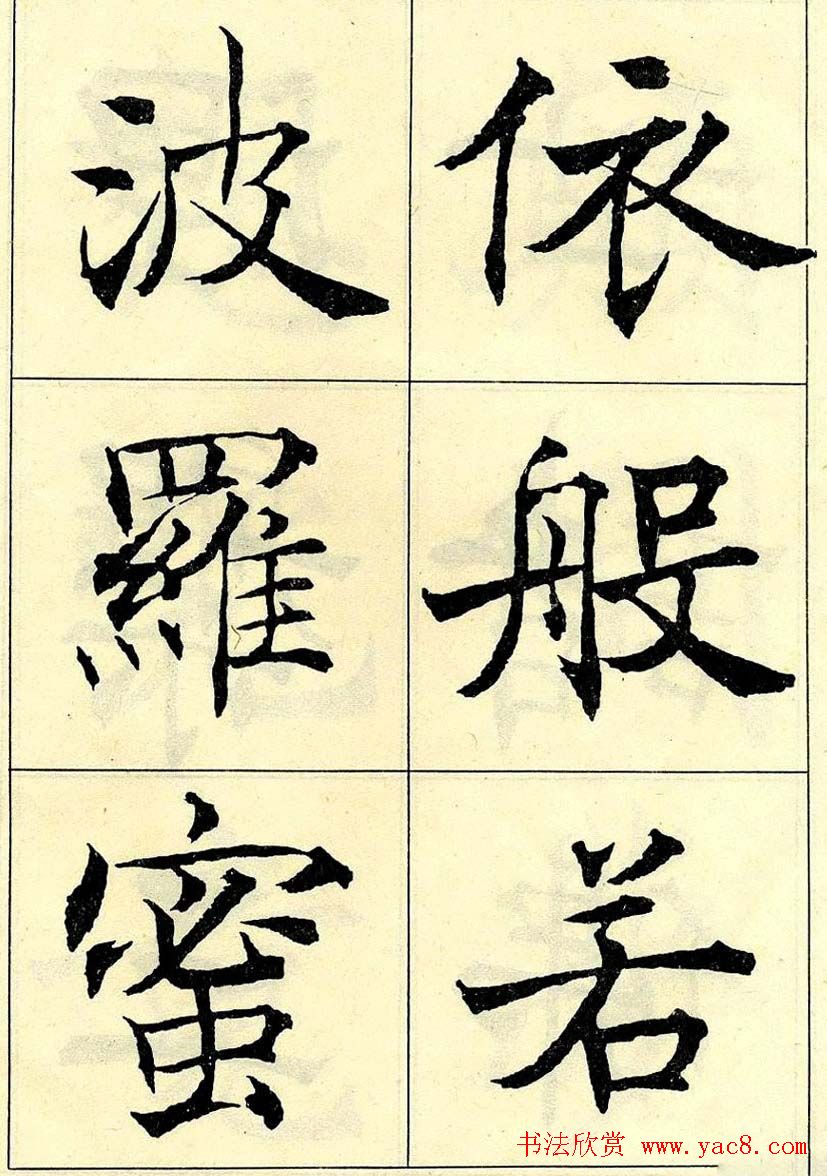 依般若
波羅蜜
书法欣赏 www.yac8.com